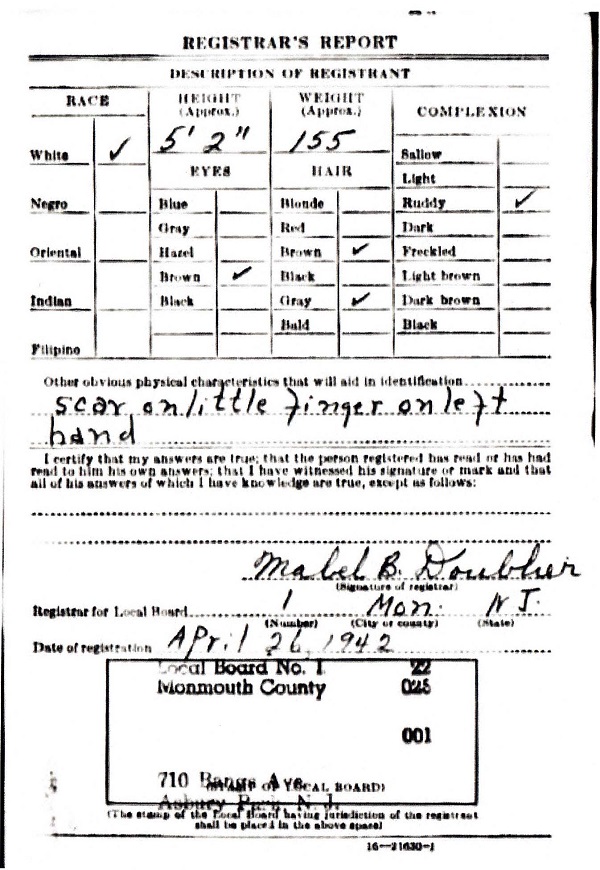 REGISTRAR'S REPORT
DESCRIPTION OF REGISTRANT
RACE
HEIGHT (Approx.)
WEIGHT (Approx.)
COMPLEXION
5' 2"
155
White ✓
Sallow
EYES
HAIR
Light
Negro
Blue
Blonde
Ruddy ✓
Gray
Red
Dark
Oriental
Hazel
Brown ✓
Freckled
Brown ✓
Black
Light brown
Indian
Black
Gray ✓
Dark brown
Bald
Black
Filipino
Other obvious physical characteristics that will aid in identification
scar on little finger on left
hand
I certify that my answers are true; that the person registered has read or has had
read to him his own answers; that I have witnessed his signature or mark and that
all of his answers of which I have knowledge are true, except as follows:
Mabel B.
(Signature of registrar)
Registrar for Local Board 1 Mon. N J.
(Number) (City or county) (State)
Date of registration April 26, 1942
Local Board No. 1 22
Monmouth County 025
001
710 Bangs Ave.
(STAMP OF LOCAL BOARD)
Asbury Park, N. J.
(The stamp of the Local Board having jurisdiction of the registrant
shall be placed in the above space)
16—21630-1